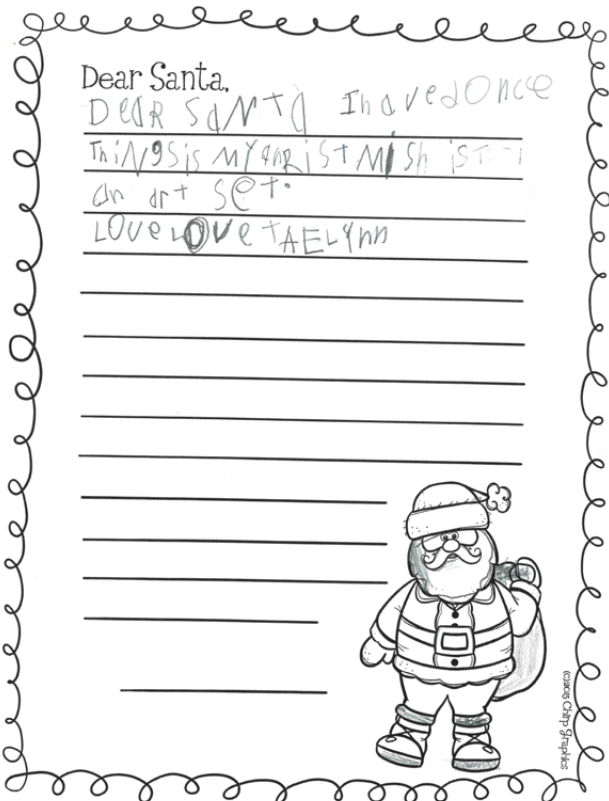 Dear Santa,
DEAR SANTA I haved Once
ThiNgs is MY christ MIsh is
an art set.
LOVe LOVe tAELYnn
(c)2015 Chirp Graphics